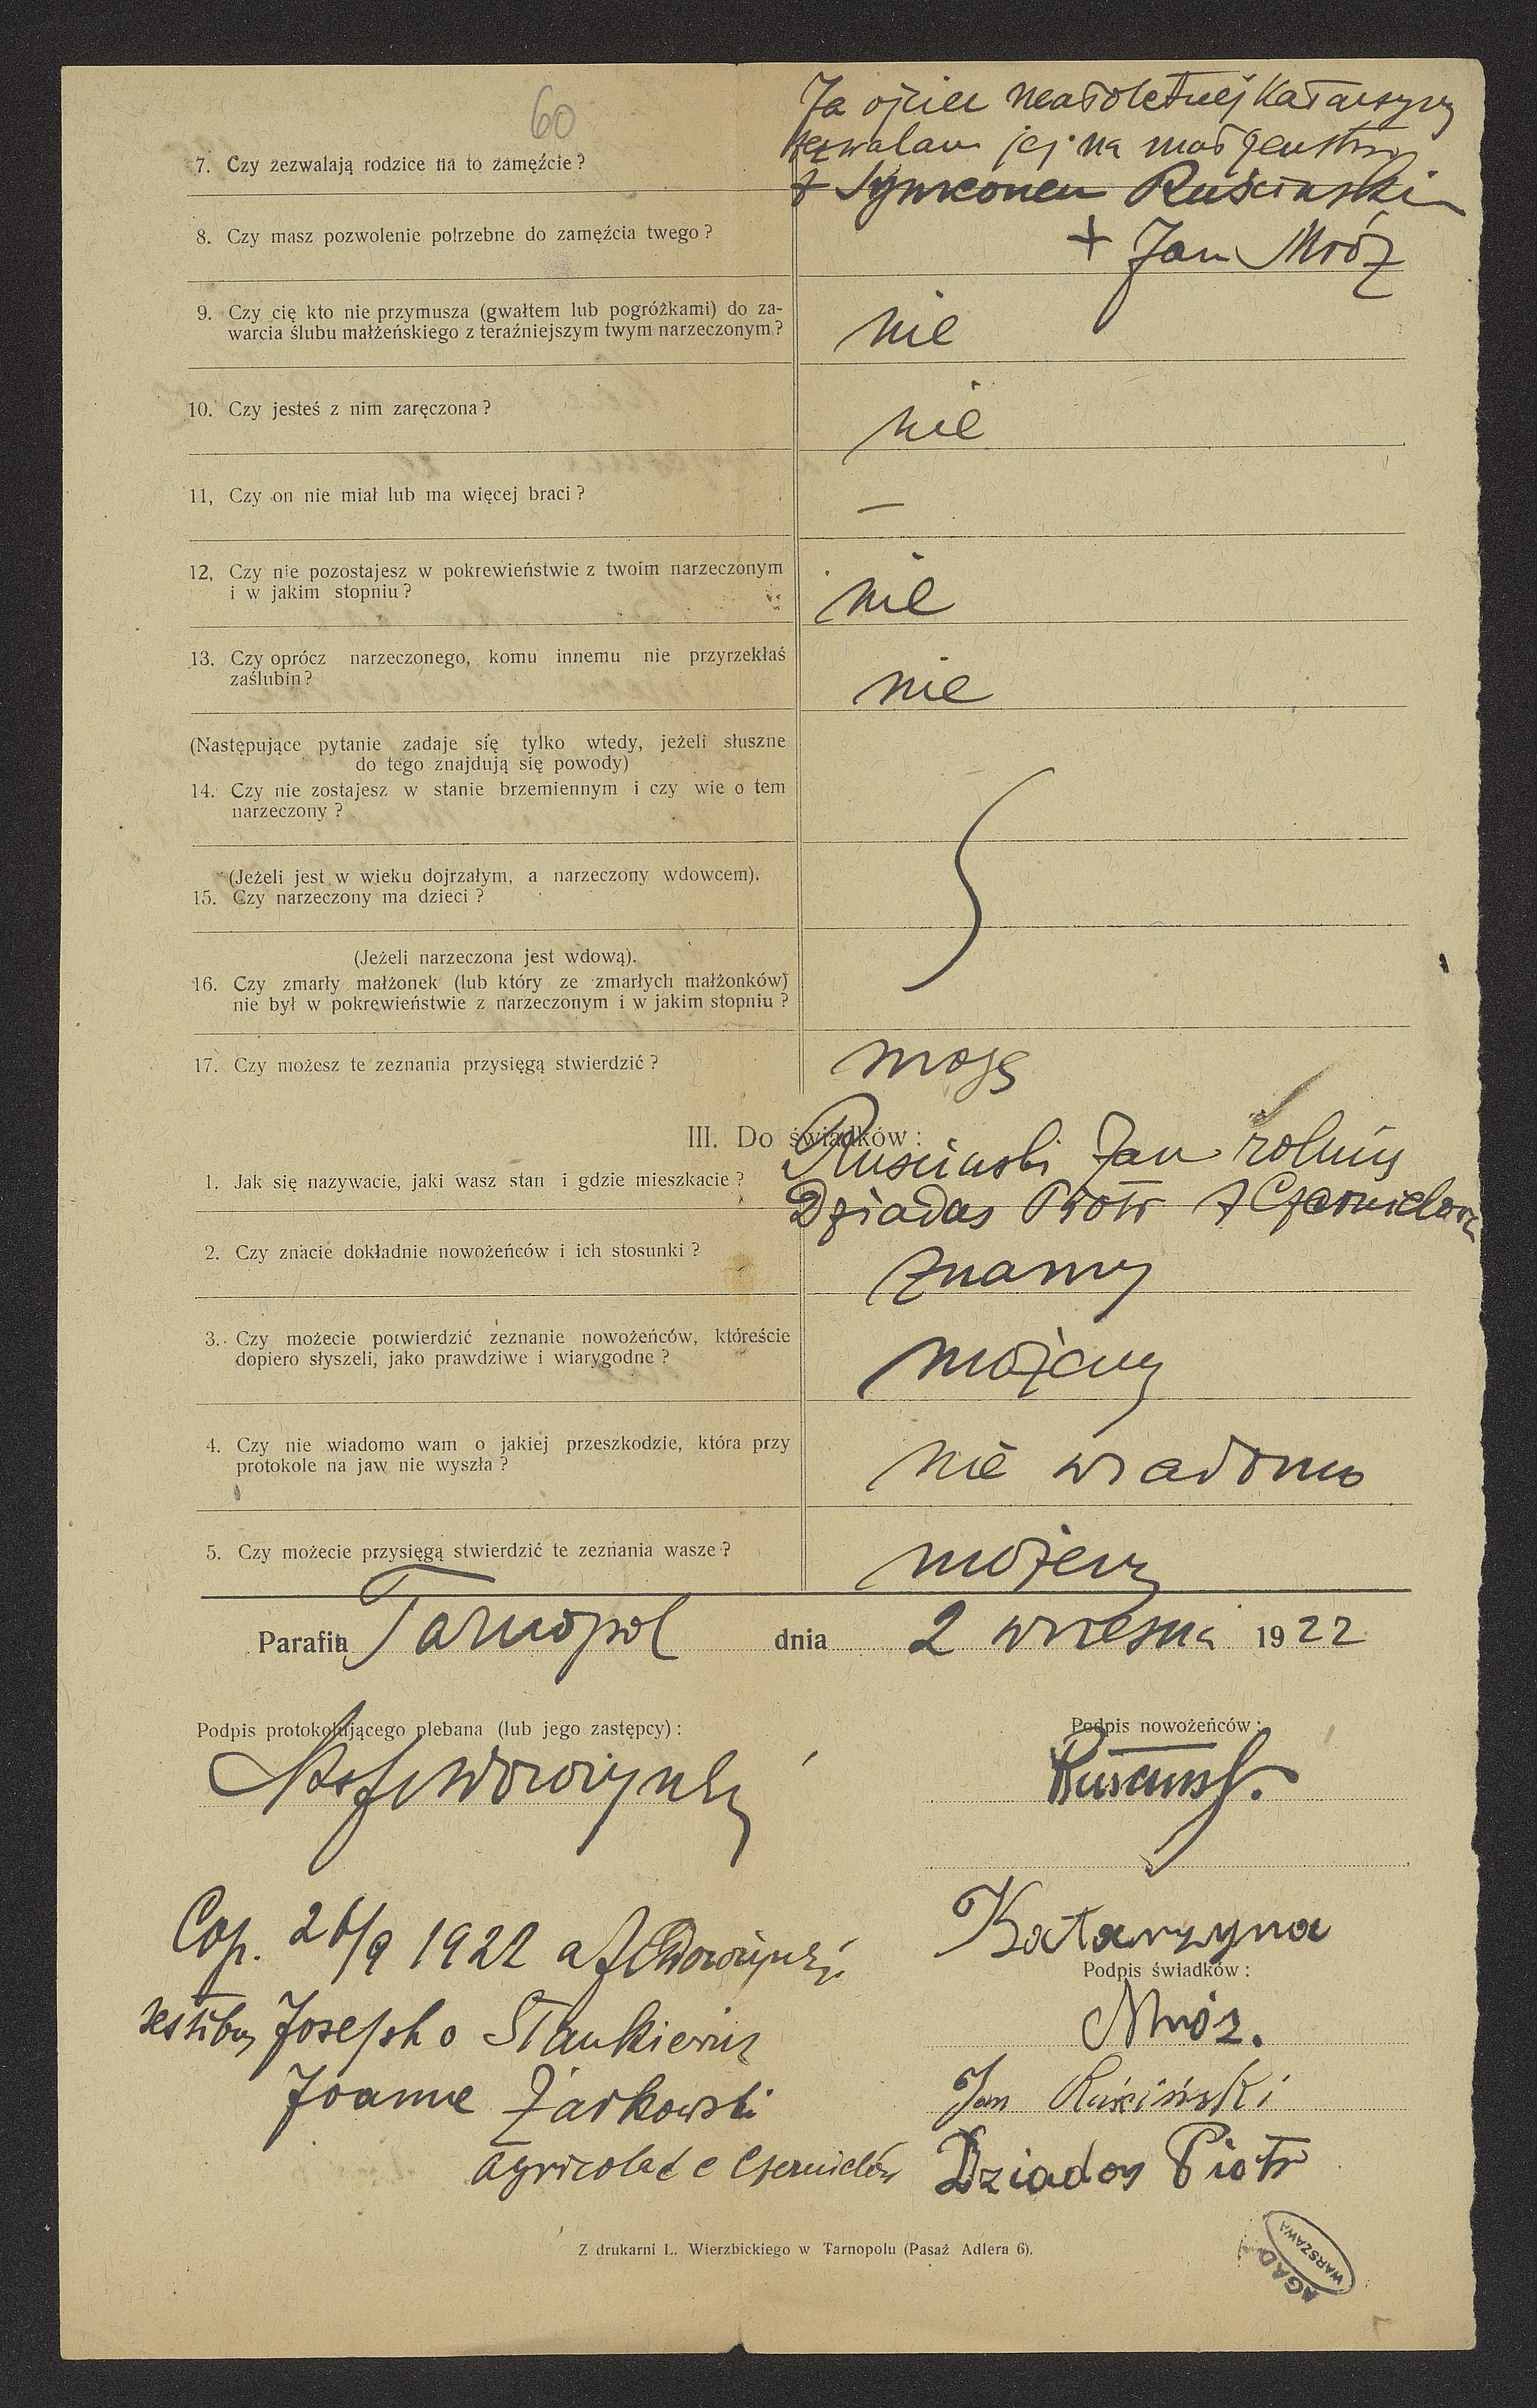 60
Ja ojciec małoletniej Katarzyny
zezwalam jej na małżeństwo
z Symeonem Ruścinskim
+ Jan Mróz
7. Czy zezwalają rodzice na to zamęźcie?
8. Czy masz pozwolenie polrzebne do zamęźcia twego?
9. Czy cię kto nie przymusza (gwałtem lub pogróżkami) do za-
warcia ślubu małżeńskiego z teraźniejszym twym narzeczonym?
nie
10. Czy jesteś z nim zaręczona?
nie
11, Czy on nie miał lub ma więcej braci?
—
12, Czy nie pozostajesz w pokrewieństwie z twoim narzeczonym
i w jakim stopniu?
nie
13. Czy oprócz narzeczonego, komu innemu nie przyrzekłaś
zaślubin?
nie
(Następujące pytanie zadaje się tylko wtedy, jeżeli słuszne
do tego znajdują się powody)
14. Czy nie zostajesz w stanie brzemiennym i czy wie o tem
narzeczony?
(Jeżeli jest w wieku dojrzałym, a narzeczony wdowcem).
15. Czy narzeczony ma dzieci?
(Jeżeli narzeczona jest wdową).
16. Czy zmarły małżonek (lub który ze zmarłych małżonków)
nie był w pokrewieństwie z narzeczonym i w jakim stopniu?
17. Czy możesz te zeznania przysięgą stwierdzić?
mogę
III. Do świadków:
1. Jak się nazywacie, jaki wasz stan i gdzie mieszkacie?
Ruscinski Jan rolnicy
Dziadas Piotr z Czernielowa
2. Czy znacie dokładnie nowożeńców i ich stosunki?
znamy
3. Czy możecie potwierdzić zeznanie nowożeńców, któreście
dopiero słyszeli, jako prawdziwe i wiarygodne?
możemy
4. Czy nie wiadomo wam o jakiej przeszkodzie, która przy
protokole na jaw nie wyszła?
nie wiadomo
5. Czy możecie przysięgą stwierdzić te zeznania wasze?
możemy
Parafia Tarnopol dnia 2 wrzesnia 1922
Podpis protokołującego plebana (lub jego zastępcy):
Podpis nowożeńców:
Ruścinski.
Katarzyna
Cop. 26/9 1922 a
Podpis świadków:
Mróz.
testibus Josepho Stankiewicz
Joanne Żarkowski
Jan Ruściński
agricolae e Czernielów
Dziados Piotr
Z drukarni L. Wierzbickiego w Tarnopolu (Pasaż Adlera 6).
AGAD
WARSZAWA